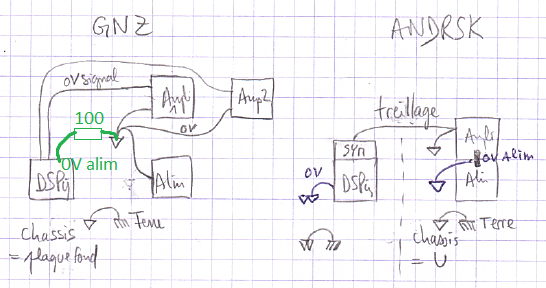 GNZ
ANDRSK
0V signal
Ampli 1
Amp2
100
0V
0V alim
DSPiy
Alim
Terre
Chassis
= plaque fond
treillage
SYM
DSPiy
0V
Ampls
0V Alim
Alim
Terre
Chassis
= U